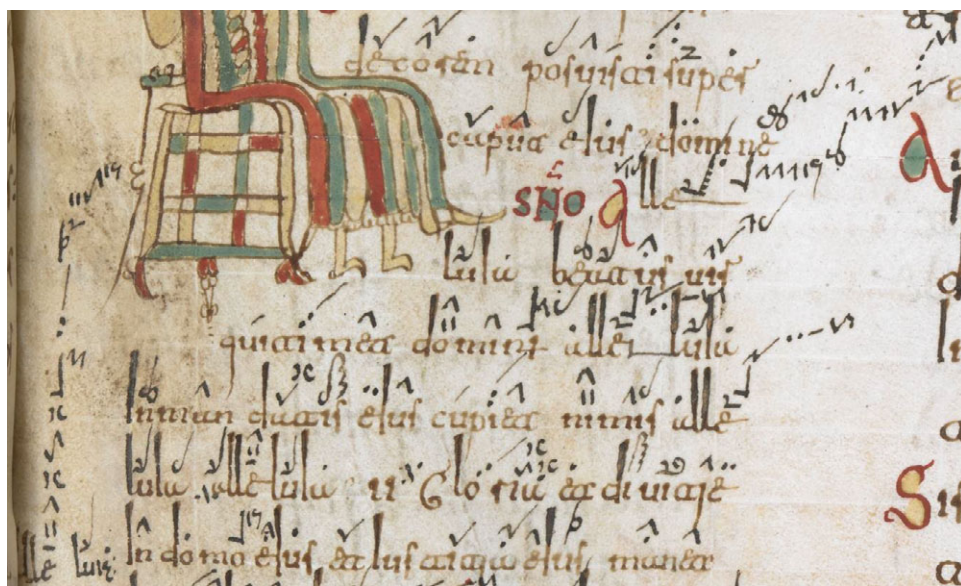 decorem posuisti super
caput eius domine
SNO Alle
luia beatus uir
qui timet dominum alleluia
In mandatis eius cupiet nimis alle
luia alleluia II Gloria et diuitie
In domo eius et iustitia eius manet